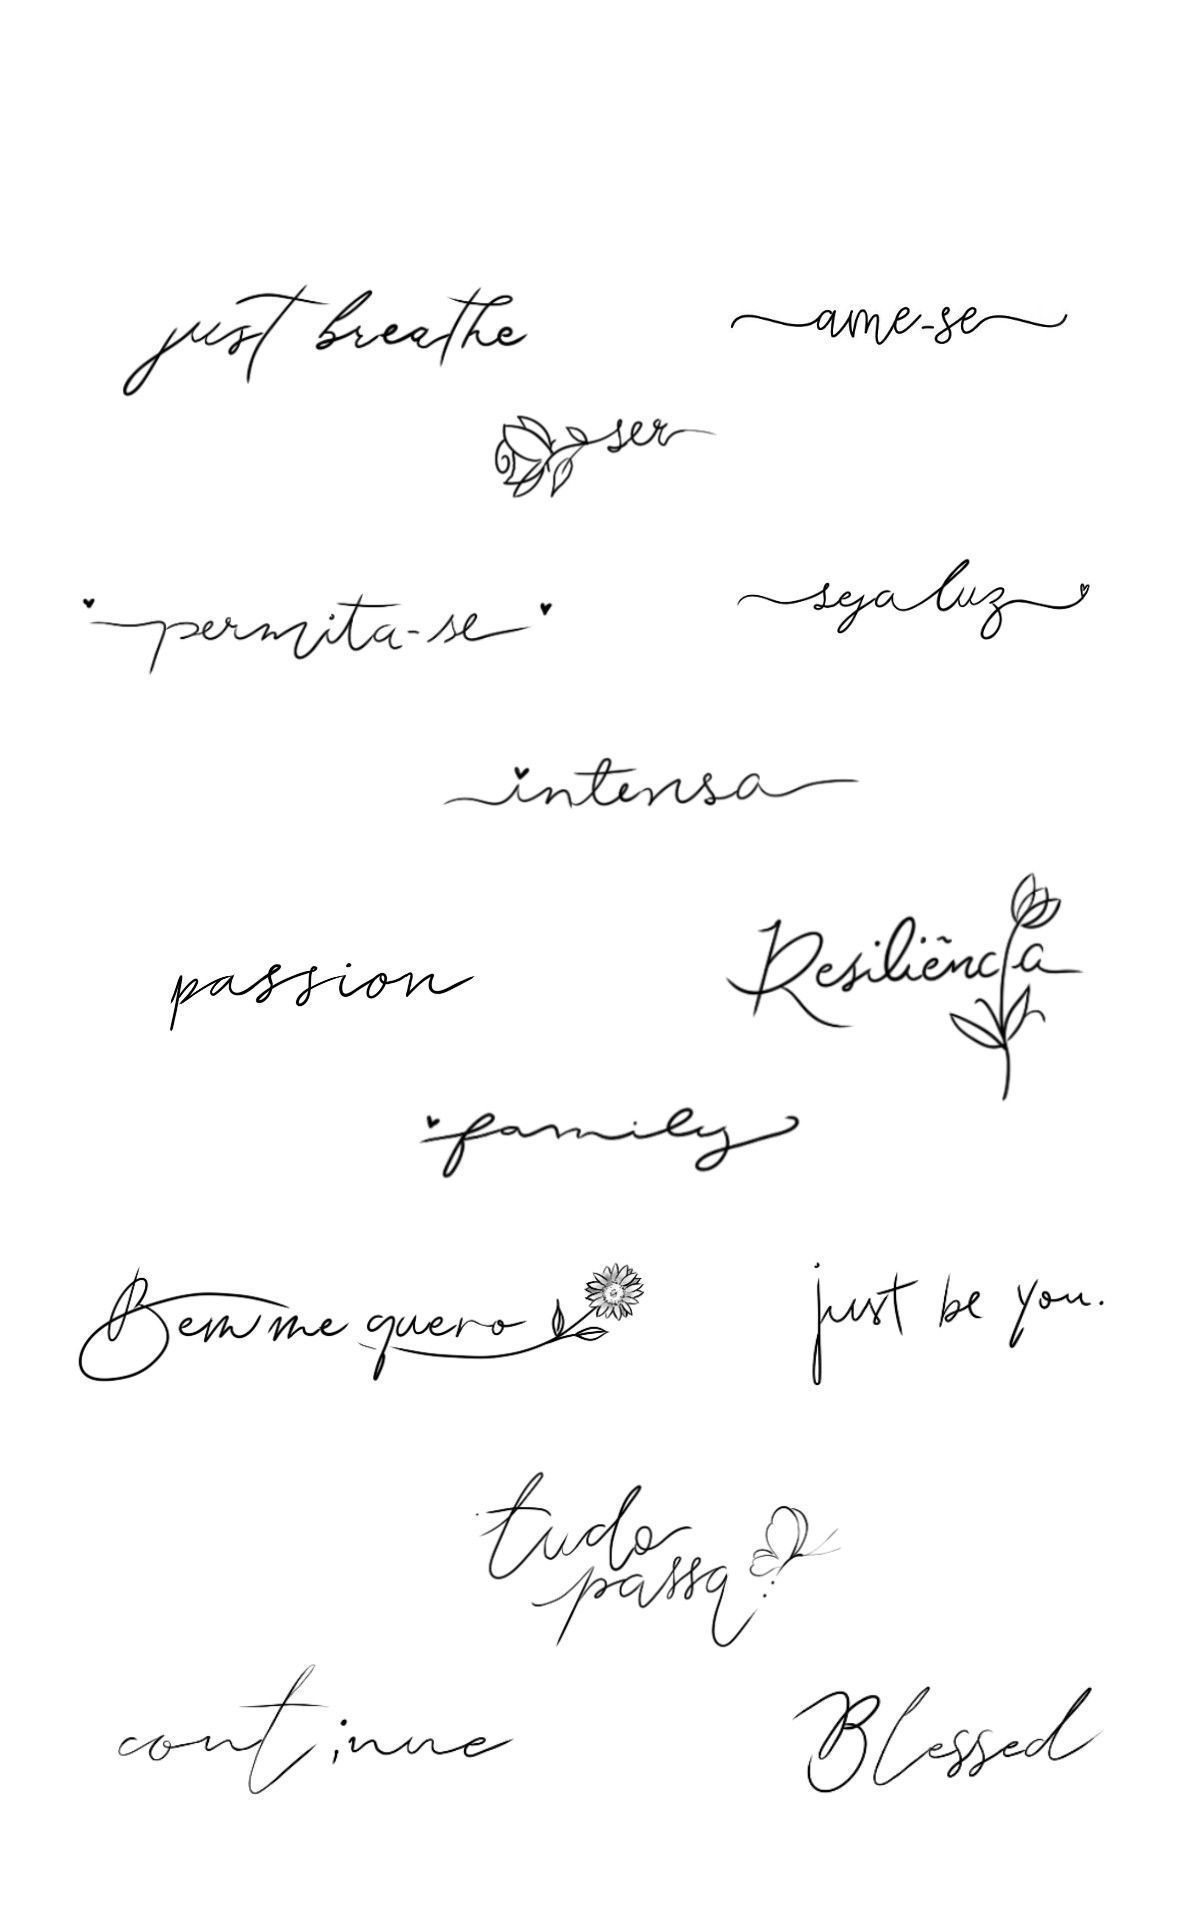 just breathe
ame-se
ser
permita-se
seja luz
intensa
passion
Resiliência
family
Bem me quero
just be you.
tudo
passa
cont;nue
Blessed